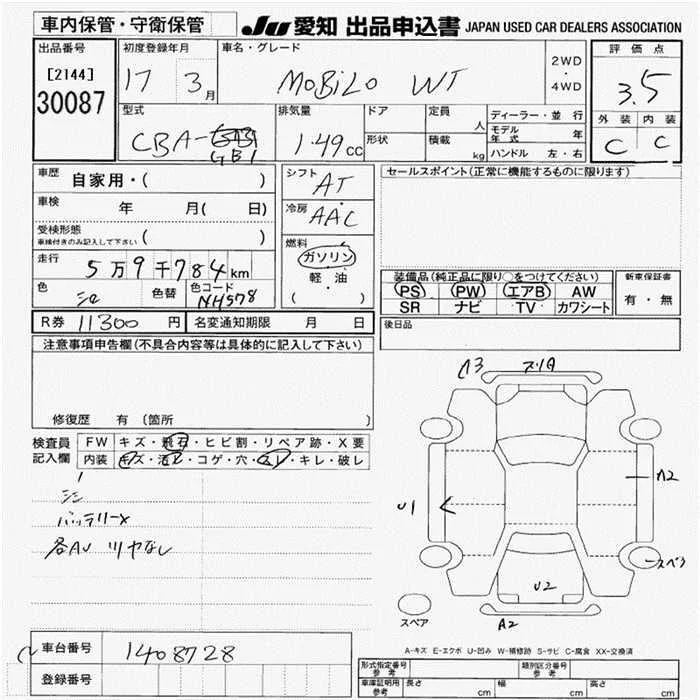 車内保管・守衛保管
JU 愛知 出品申込書 JAPAN USED CAR DEALERS ASSOCIATION
出品番号
[2144]
30087
初度登録年月
17 3月
車名・グレード
MOBiLO WT
2WD
・
4WD
評価点
3.5
外装 内装
C C
型式
CBA-GB1
排気量
1.49cc
ドア
形状
定員
人
積載
kg
ディーラー・並行
モデル年式 年
ハンドル 左・右
車歴 自家用・( )
車検 年 月( 日)
受検形態
車検付きのみ記入して下さい ( )
走行 5万9千784km
色 シロ 色替 色コード NH578
シフト
AT
冷房
AAC
燃料
ガソリン
軽・油
( )
セールスポイント(正常に機能するものに限ります)
装備品(純正品に限り○をつけてください)
PS PW エアB AW
SR ナビ TV カワシート
新車保証書
有・無
R券 11300円 名変通知期限 月 日
後日品
注意事項申告欄(不具合内容等は具体的に記入して下さい)
修復歴 有 〔箇所 〕
検査員
記入欄
FW キズ・飛石・ヒビ割・リペア跡・X要
内装 キズ・汚レ・コゲ・穴・スレ・キレ・破レ
バッテリーX
各AU ツヤなし
A3 スリキ
U1
A2
スペラ
U2
A2
スペア
A-キズ E-エクボ U-凹み W-補修跡 S-サビ C-腐食 XX-交換済
車台番号 1408728
登録番号
形式指定番号
参考
類別区分番号
参考
車庫証明用
参考
長さ cm 幅 cm 高さ cm